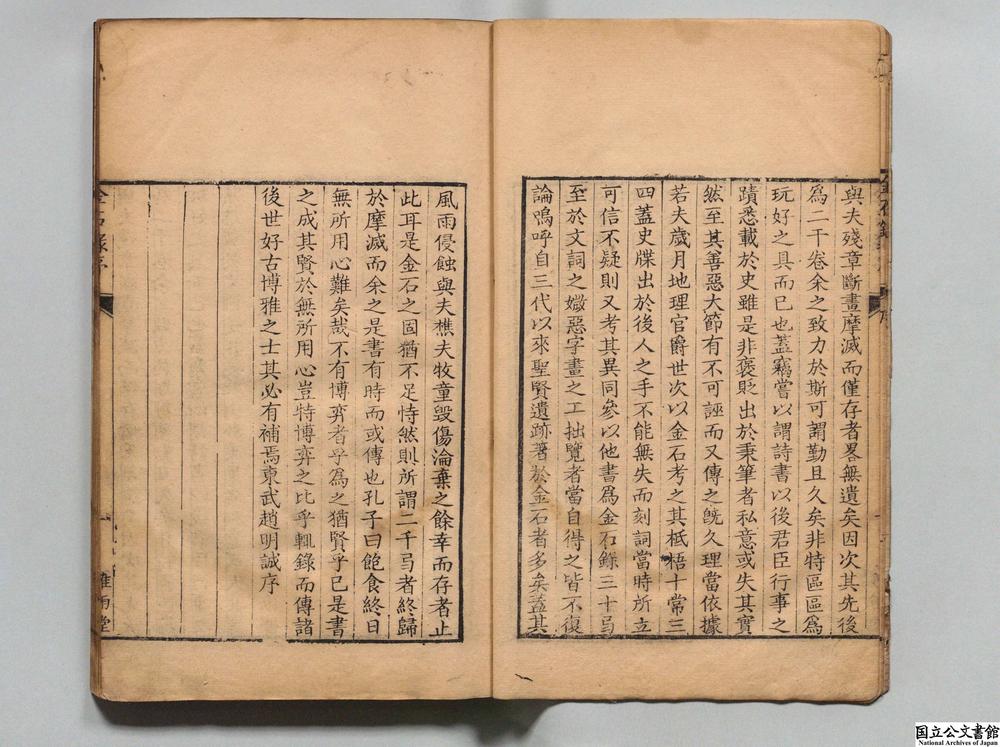 與夫殘章斷畫摩滅而僅存者畧無遺矣因次其先後
爲二千卷余之致力於斯可謂勤且久矣非特區區爲
玩好之具而已也蓋竊嘗以謂詩書以後君臣行事之
蹟悉載於史雖是非褒貶出於秉筆者私意或失其實
然至其善惡大節有不可誣而又傳之旣久理當依據
若夫歲月地理官爵世次以金石考之其柢梧十常三
四蓋史牒出於後人之手不能無失而刻詞當時所立
可信不疑則又考其異同參以他書爲金石錄三十弓
至於文詞之媺惡字畫之工拙覽者當自得之皆不復
論嗚呼自三代以來聖賢遺跡著於金石者多矣蓋其
風雨侵蝕與夫樵夫牧童毀傷淪棄之餘幸而存者止
此耳是金石之固猶不足恃然則所謂二千弓者終歸
於摩滅而余之是書有時而或傳也孔子曰飽食終日
無所用心難矣哉不有博弈者乎爲之猶賢乎已是書
之成其賢於無所用心豈特博弈之比乎輒錄而傳諸
後世好古博雅之士其必有補焉東武趙明誠序
金石錄序
雅雨堂
国立公文書館
National Archives of Japan